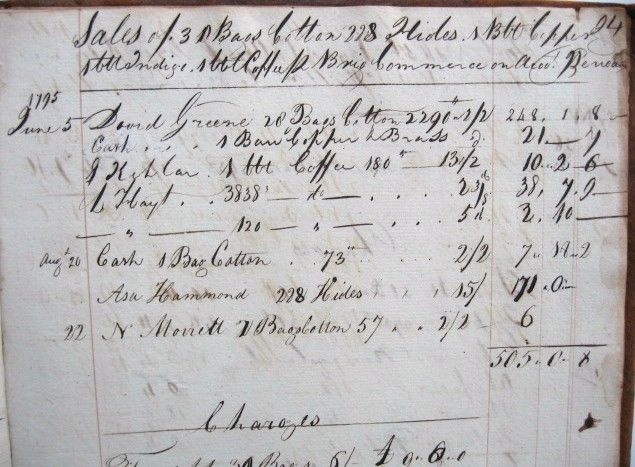 Sales of 30 Bags Cotton 228 Hides. 1 Bbl Copper 24
1 bbl Indigo. 1 bbl Coffee Brig Commerce on Acco.t
1795
June 5 David Greene 28 Bags Cotton 2290 " 2/2 248 " 1 " 8
Cash 1 Barrl Copper & Brass 21 " — " 7
1 bbl Coffee 180 " — 13 1/2 10 " 2 " 6
Hayt . . 3838 — do — 38 " 7 " 9
" " 120 — " — 5d 2 " 10 —
Augt 20 Cash 1 Bag Cotton . . 73 " . . 2/2 7 " 18 " 2
Asa Hammond 228 Hides 15/ 171 " 0 " —
22 N Morrett 1 Bags Cotton 57 " " 2/2 6
505 " 0 " 8
Charges
30 Bags 6/-